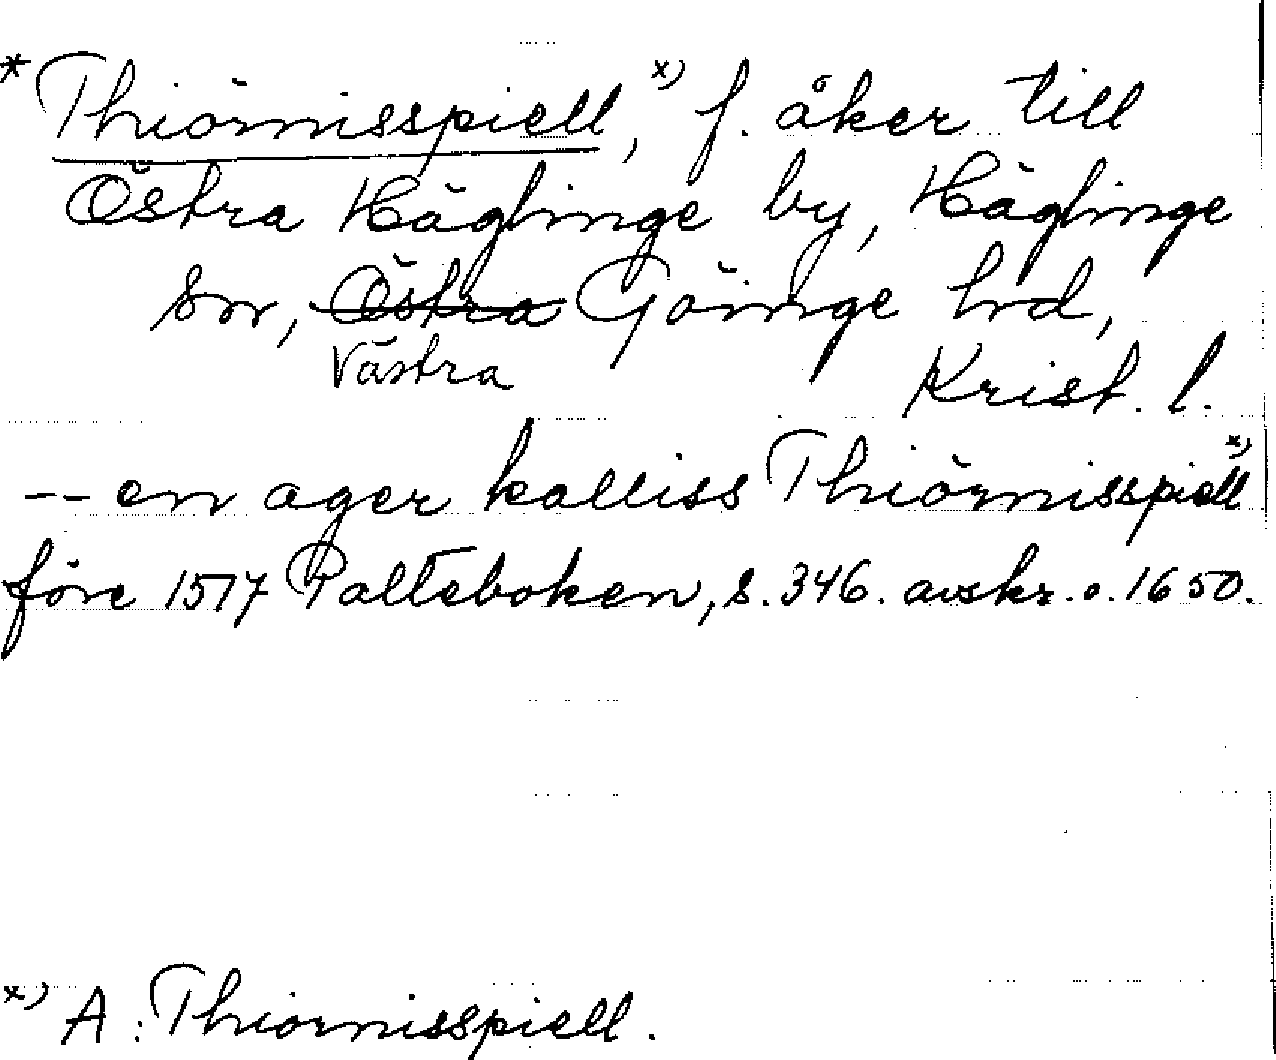 * Thiörnisspiell, x) f. åker till
Östra Häglinge by, Häglinge
sn, Östra Göinge hd,
Västra
Krist. l.
-- en ager kalliss Thiörnisspiell x)
före 1517 Palteboken, s. 346. avskr. o. 1650.
x) A: Thiornisspiell.